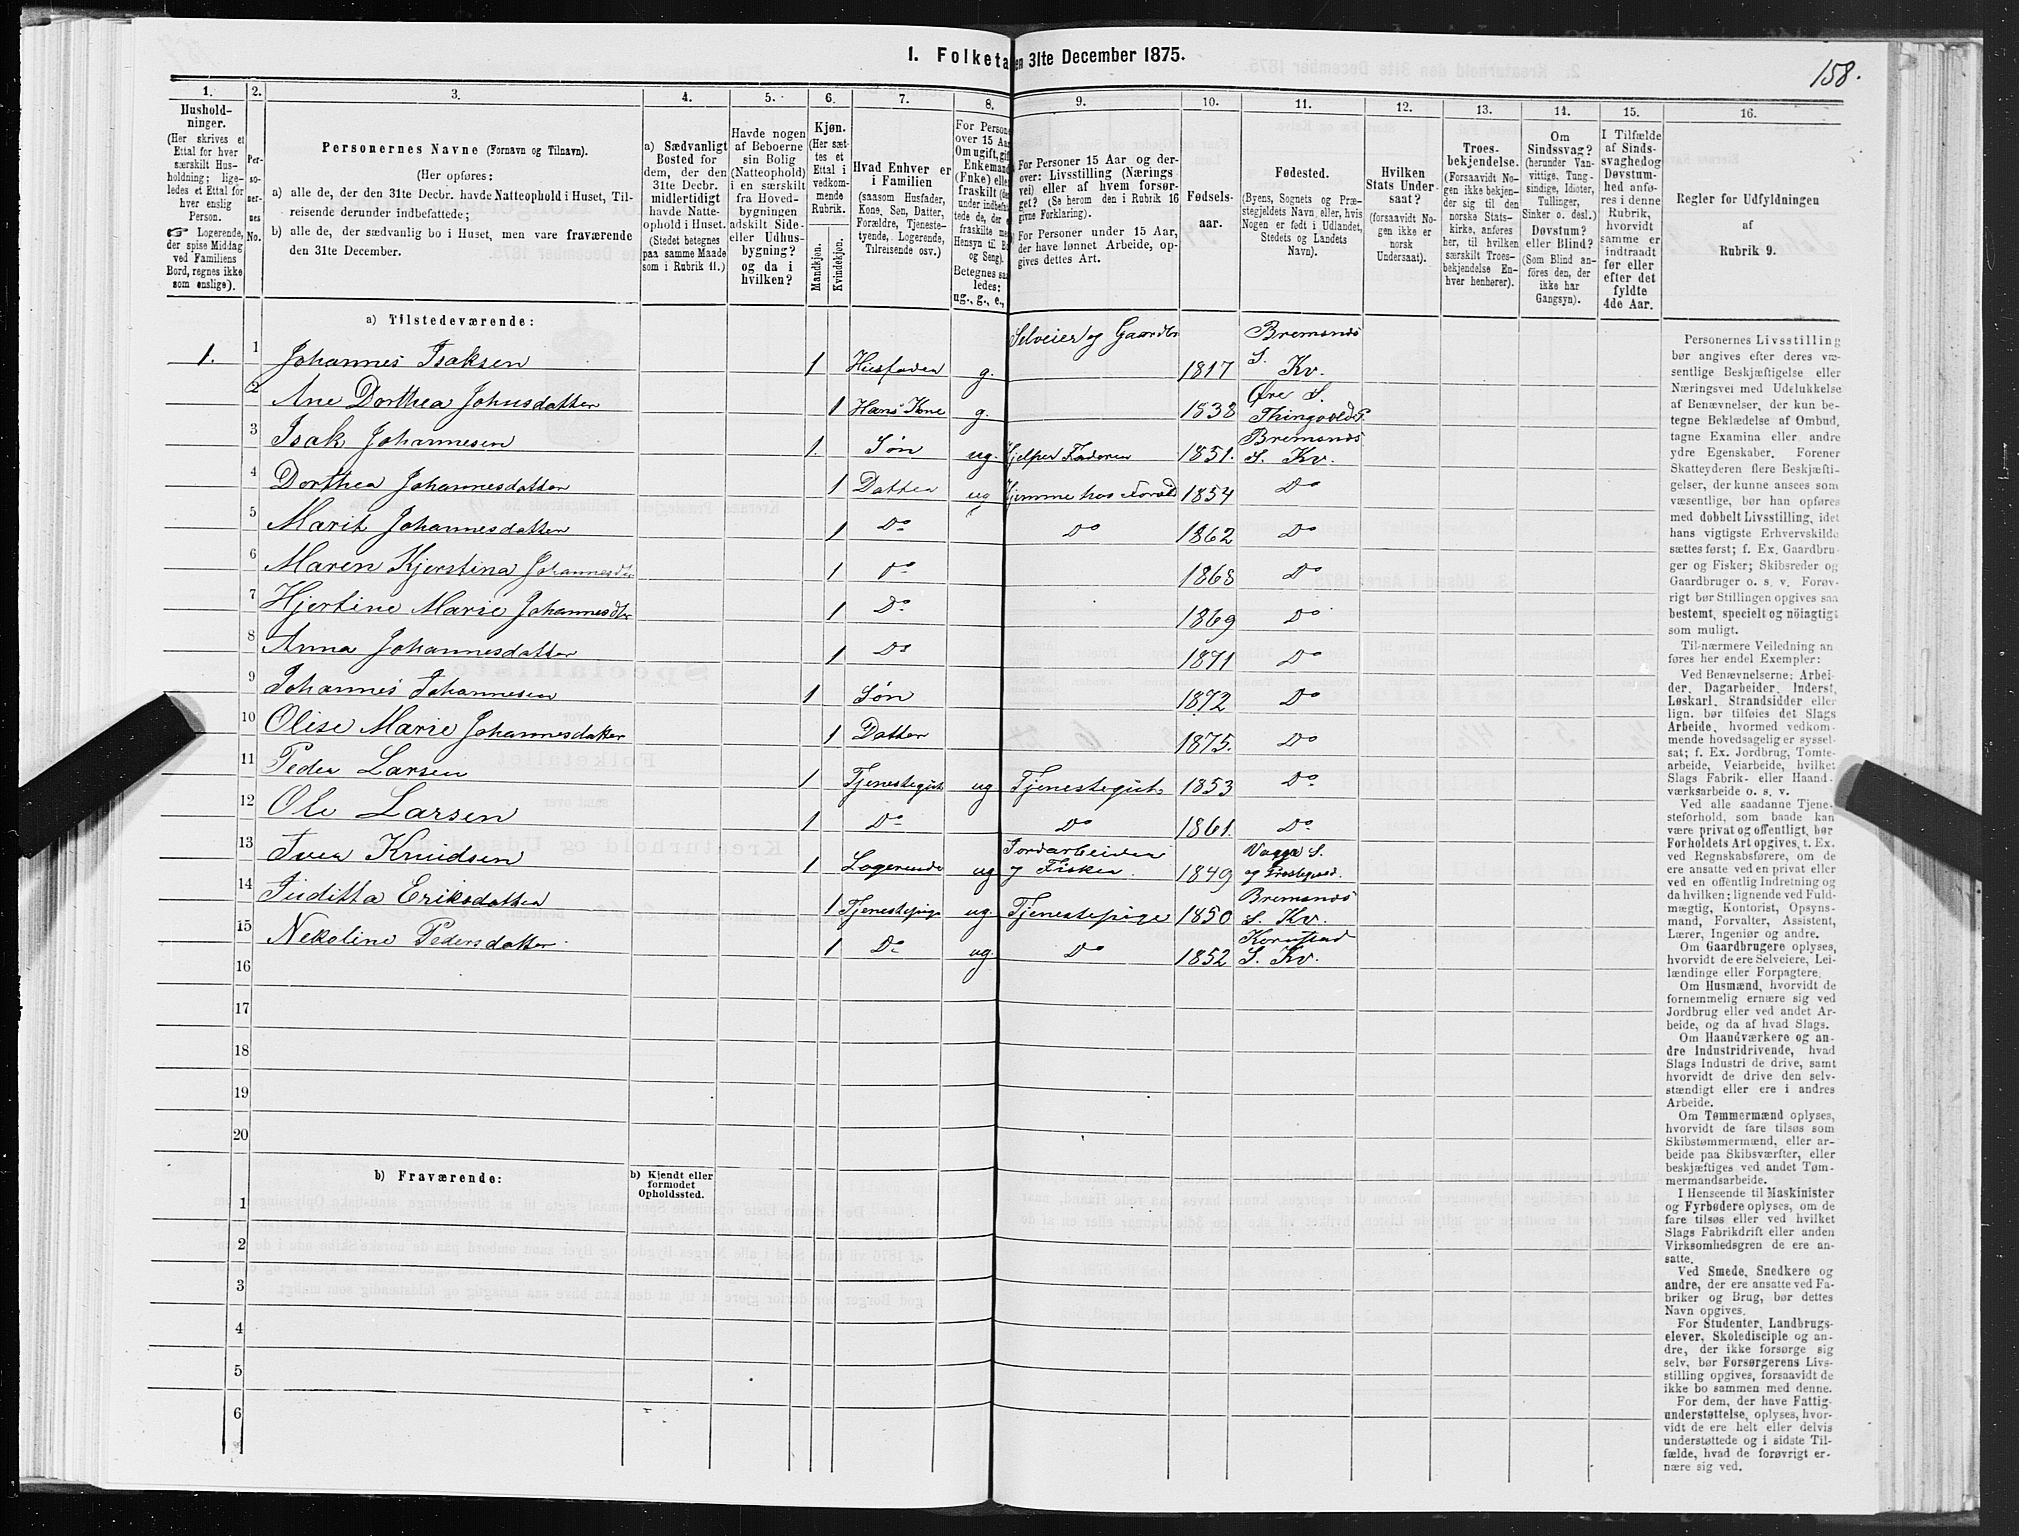 1. Folketa en 31te December 1875.
158.
1. 2. 3. 4. 5. 6. 7. 8. 9. 10. 11. 12. 13. 14. 15. 16.
Hushold-
ninger.
(Her skrives et
Ettal for hver
særskilt Hus-
holdning; lige-
ledes et Ettal for
hver enslig
Person.
Logerende,
der spise Middag
ved Familiens
Bord, regnes ikke
som enslige).
Per-
so-
ner-
nes
No.
Personernes Navne (Fornavn og Tilnavn).
(Her opføres:
a) alle de, der den 31te Decbr. havde Natteophold i Huset, Til-
reisende derunder indbefattede;
b) alle de, der sædvanlig bo i Huset, men vare fraværende
den 31te December.
a) Sædvanligt
Bosted for
dem, der den
31te Decbr.
midlertidigt
havde Natte-
ophold i Huset.
(Stedet betegnes
paa samme Maade
som i Rubrik 11.)
Havde nogen
af Beboerne
sin Bolig
(Natteophold)
i en særskilt
fra Hoved-
bygningen
adskilt Side-
eller Udhus-
bygning?
og da i
hvilken?
Kjøn.
(Her sæt-
tes et
Ettal i
vedkom-
mende
Rubrik.
Mandkjøn.
Kvindekjøn.
Hvad Enhver er
i Familien
(saasom Husfader,
Kone, Søn, Datter,
Forældre, Tjeneste-
tyende, Logerende,
Tilreisende osv.)
For Persone
over 15 Aar
Om ugift, gif
Enkemand
(Enke) elle
fraskilt (der
under indbefat-
tede de, der er
fraskilte med
Hensyn til Bo
og Seng).
Betegnes saa
ledes:
ug., g., e.,
For Personer 15 Aar og der-
over: Livsstilling (Nærings
vei) eller af hvem forsør-
get? (Se herom den i Rubrik 16
givne Forklaring).
For Personer under 15 Aar,
der have lønnet Arbeide, op-
gives dettes Art.
Fødsels-
aar.
Fødested.
(Byens, Sognets og Præ-
stegjeldets Navn, eller, hvis
Nogen er født i Udlandet,
Stedets og Landets
Navn).
Hvilken
Stats Under-
saat?
(forsaavidt No-
gen ikke er
norsk
Undersaat).
Troes-
bekjendelse.
(Forsaavidt No-
gen ikke bekjen-
der sig til den
norske Stats-
kirke, anføres
her, til hvilken
særskilt Troes-
bekjendelse En-
hver henhører).
Om
Sindssvag?
(herunder Van-
vittige, Tung-
sindige, Idioter,
Tullinger,
Sinker o. desl.)
Døvstum?
eller Blind?
(Som Blind an-
føres den, der
ikke har
Gangsyn).
I Tilfælde
af Sinds-
svaghed og
Døvstum-
hed anfø-
res i denne
Rubrik,
hvorvidt
samme er
indtraadt
før eller
efter det
fyldte
4de Aar.
Regler for Udfyldningen
af
Rubrik 9.
a) Tilstedeværende:
1. 1 Johannes Isaksen 1 Husfader g. Selveier og Gaardbr 1817 Bremsnæs S. Kv.
2 Ane Dorthea Johnsdatter 1 Hans Kone g. 1838 Øre S. Thingvolds P.
3 Isak Johannesen 1. Søn ug. Hjelper Faderen 1851. Bremsnæs S. Kv.
4 Dorthea Johannesdatter 1 Datter ug Hjemme hos Foræld 1854 Do
5 Marit Johannesdatter 1 Do Do 1862 Do
6 Maren Kjerstina Johannesdtr 1 Do 1868 Do
7 Hjertine Marie Johannesdtr 1 Do 1869 Do
8 Anna Johannesdatter 1 Do 1871 Do
9 Johannes Johannesen 1 Søn 1872 Do
10 Olise Marie Johannesdatter 1 Datter 1875. Do
11 Peder Larsen 1 Tjenestegut ug Tjenestegut 1853 Do
12 Ole Larsen 1 Do Do 1861. Do
13 Iver Knudsen 1 Logerende ug Jordarbeider og Fisker. 1849 S. og
14 Juditta Eriksdatter 1 Tjenestepige ug. Tjenestepige 1850 Bremsnæs S. Kv.
15 Nekoline Pedersdatter 1 Do ug. Do 1852 Kornstad S. Kv.
16
17
18
19
20
b) Fraværende:
b) Kjendt eller
formodet
Opholdssted.
1
2
3
4
5
6
Personernes Livsstilling
bør angives efter deres væ-
sentlige Beskjæftigelse eller
Næringsvei med Udelukkelse
af Benævnelser, der kun be-
tegne Beklædelse af Ombud,
tagne Examina eller andre
ydre Egenskaber. Forener
Skatteyderen flere Beskjæfti-
gelser, der kunne ansees som
væsentlige, bør han opføres
med dobbelt Livsstilling, idet
hans vigtigste Erhvervskilde
sættes først; f. Ex. Gaardbru-
ger og Fisker; Skibsreder og
Gaardbruger o. s. v. Forøv-
rigt bør Stillingen opgives saa
bestemt, specielt og nöiagtigt
som muligt.
Til nærmere Veiledning an
føres her endel Exempler:
Ved Benævnelserne: Arbei-
der, Dagarbeider, Inderst,
Løskarl, Strandsidder eller
lign. bør tilføies det Slags
Arbeide, hvormed vedkom-
mende hovedsagelig er syssel-
sat; f. Ex. Jordbrug, Tomte-
arbeide, Veiarbeide, hvilket
Slags Fabrik- eller Haand-
værksarbeide o. s. v.
Ved alle saadanne Tjene-
steforhold, som baade kan
være privat og offentligt, bør
Forholdets Art opgives, t. Ex.
ved Regnskabsførere, om de
ere ansatte ved en privat eller
ved en offentlig Indretning og
da hvilken; lignende ved Fuld-
mægtig, Kontorist, Opsyns-
mand, Forvalter, Assistent,
Lærer, Ingeniør og andre.
Om Gaardbrugere oplyses,
hvorvidt de ere Selveiere, Lei-
lændinge eller Forpagtere.
Om Husmænd, hvorvidt de
fornemmelig ernære sig ved
Jordbrug eller ved andet Ar-
beide, og da af hvad Slags.
Om Haandværkere og an-
dre Industridrivende, hvad
Slags Industri de drive, samt
hvorvidt de drive den selv-
stændigt eller ere i andres
Arbeide.
Om Tømmermænd oplyses,
hvorvidt de fare tilsøs som
Skibstømmermænd, eller ar-
beide paa Skibsværfter, eller
beskjæftiges ved andet Tøm-
mermandsarbeide.
I Henseende til Maskinister
og Fyrbødere oplyses, om de
fare tilsøs eller ved hvilket
Slags Fabrikdrift eller anden
Virksomhedsgren de ere an-
satte.
Ved Smede, Snedkere og
andre, der ere ansatte ved Fa-
briker og Brug, bør dettes
Navn opgives.
For Studenter, Landbrugs-
elever, Skoledisciple og an-
dre, der ikke forsørge sig
selv, bør Forsørgerens Livs-
stilling opgives, forsaavidt de
ikke bo sammen med denne.
For dem, der have Fattig-
understøttelse, oplyses, hvor-
vidt de ere helt eller delvis
understøttede og i sidste Til-
fælde, hvad de forøvrigt er-
nære sig ved.